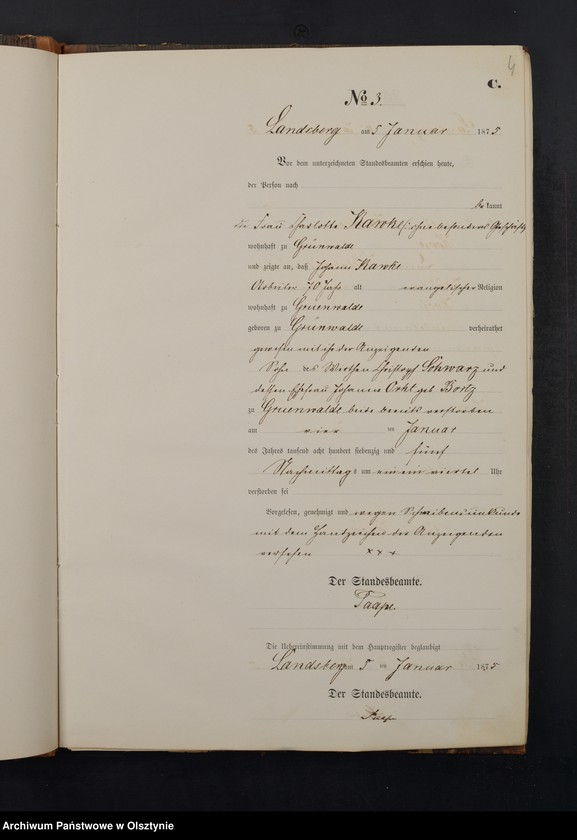 4
C.
No 3.
Landsberg am 5 Januar 1875
Vor dem unterzeichneten Standesbeamten erschien heute,
der Person nach
bekannt
die Frau Charlotte ohne besonderes Geschäft
wohnhaft zu Grünwalde
und zeigte an, daß Johann
Arbeiter 70 Jahr alt evangelischer Religion
wohnhaft zu Gruenwalde
geboren zu Grünwalde verheirathet
gewesen mit ihr der Anzeigenden
Sohn des Christoph Schwarz und
dessen Ehefrau Johanne geb
zu Gruenwalde beide bereits verstorben
am vier ten Januar
des Jahres tausend acht hundert siebenzig und fünf
Nachmittags um ein viertel Uhr
verstorben sei
Vorgelesen, genehmigt und wegen Schreibensunkunde
mit dem Handzeichen der Anzeigenden
versehen x x x
Der Standesbeamte.
Die Uebereinstimmung mit dem Hauptregister beglaubigt
Landsberg am 5 ten Januar 1875
Der Standesbeamte.
Archiwum Państwowe w Olsztynie